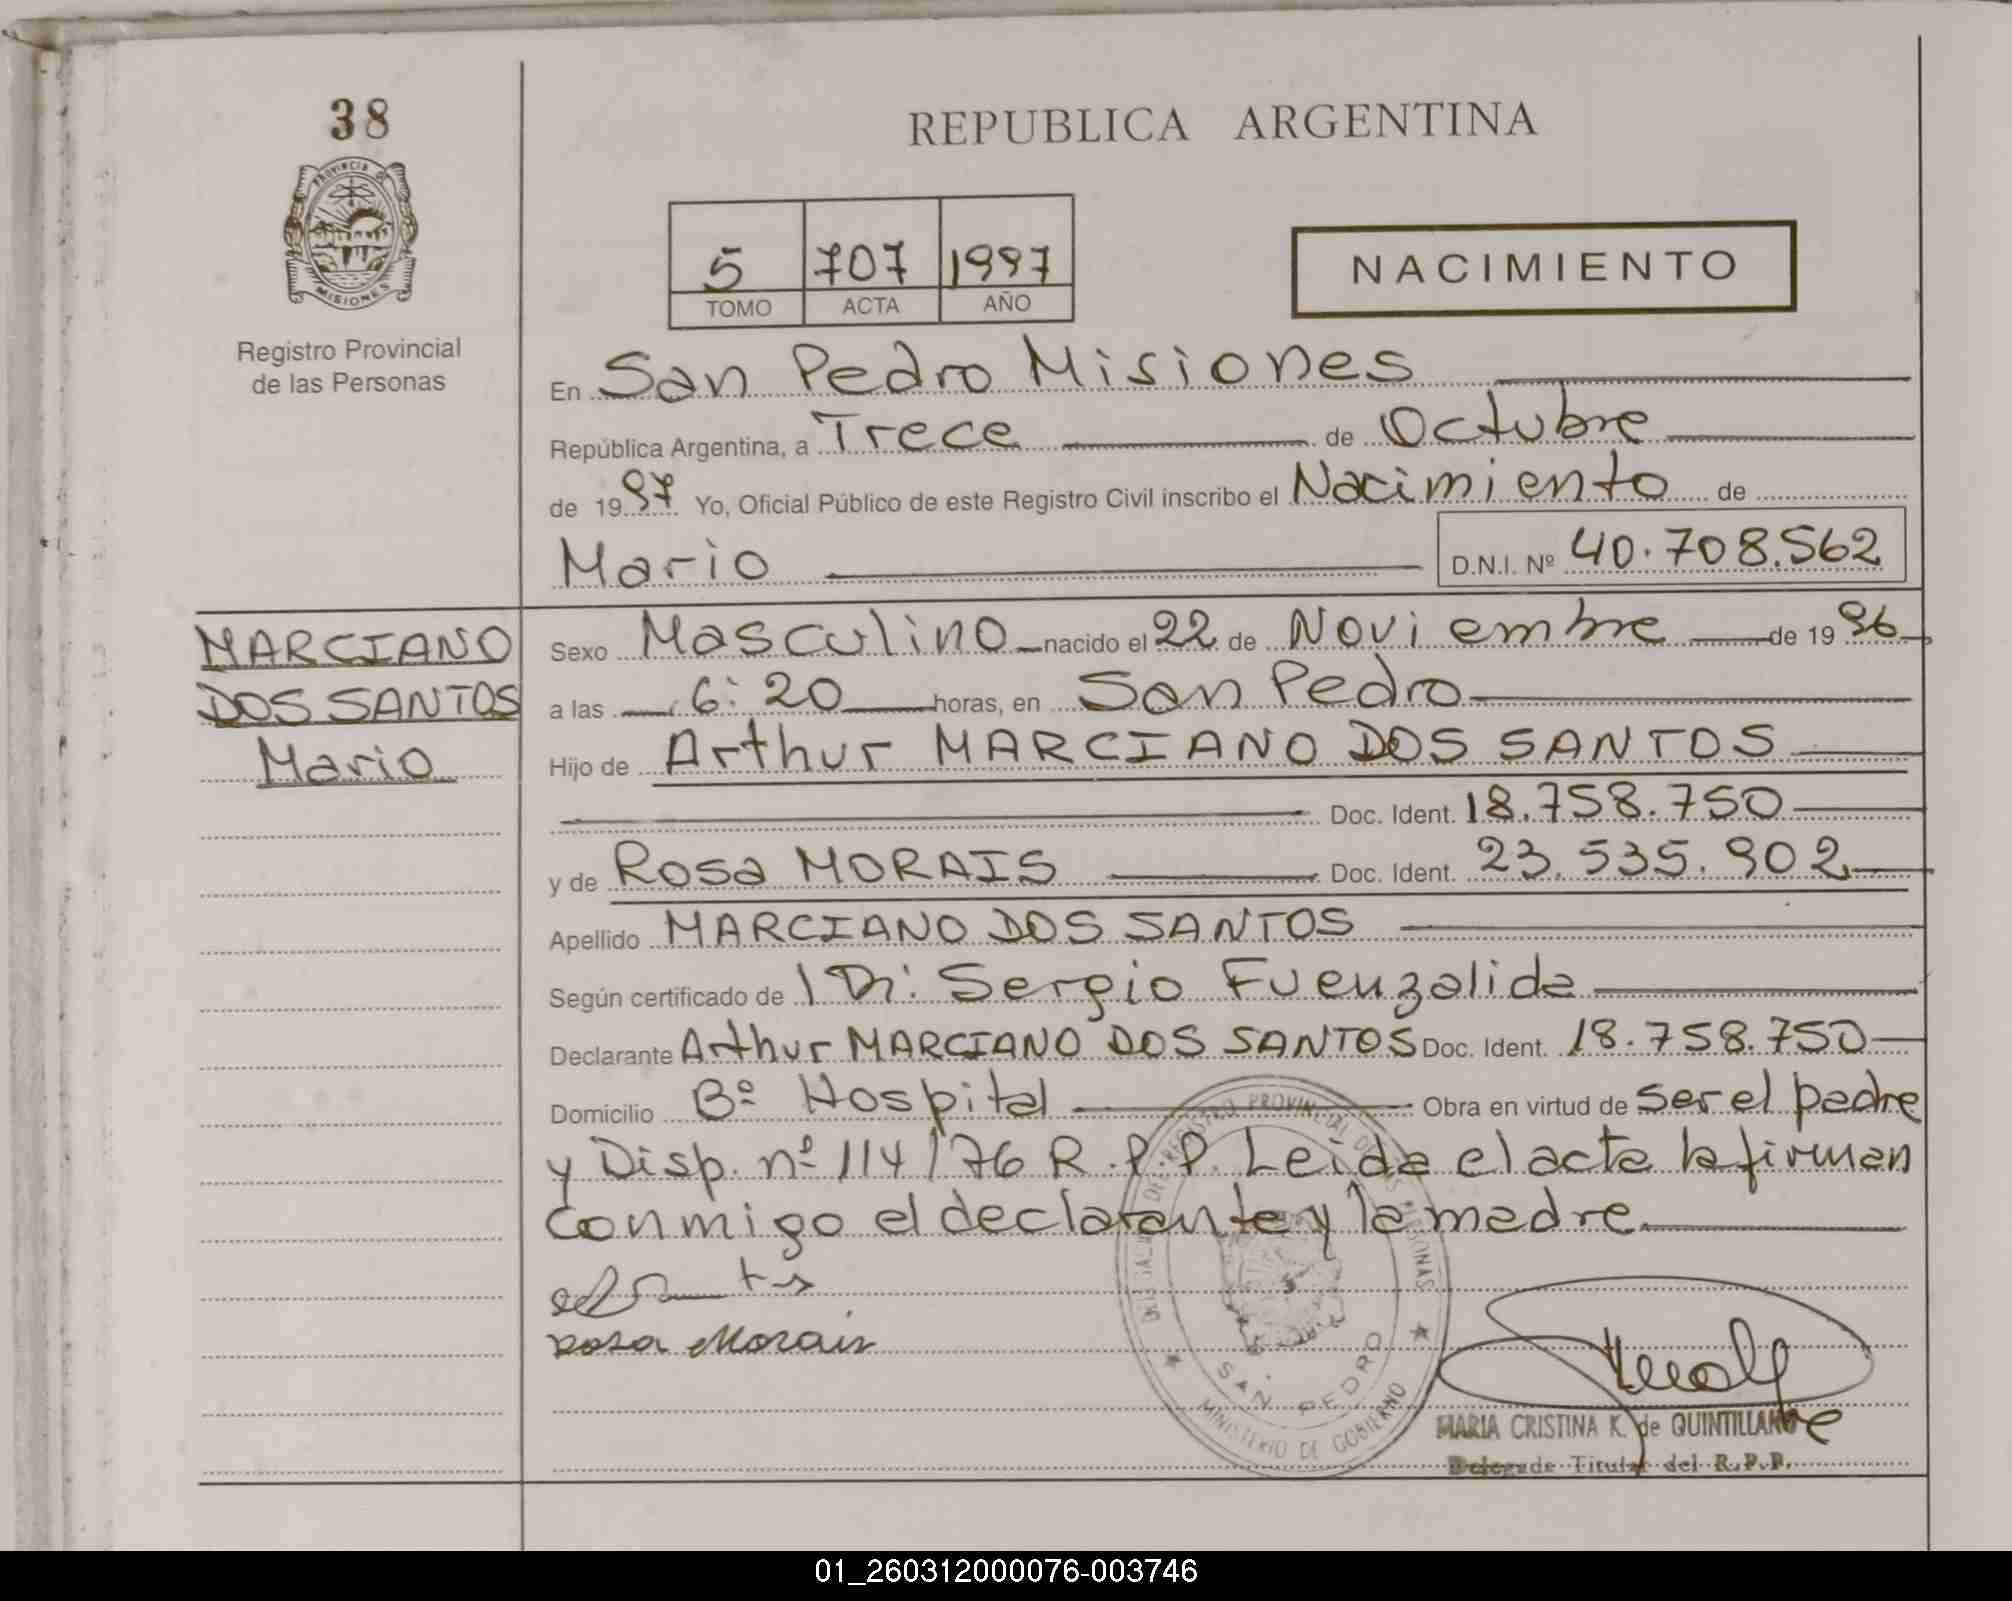 38
PROVINCIA DE
MISIONES
Registro Provincial
de las Personas
REPUBLICA ARGENTINA
5 707 1997
TOMO ACTA AÑO
NACIMIENTO
En San Pedro Misiones
República Argentina, a Trece de Octubre
de 1997 Yo, Oficial Público de este Registro Civil inscribo el Nacimiento de
Mario D.N.I. Nº 40.708.562
MARCIANO
DOS SANTOS
Mario
Sexo Masculino nacido el 22 de Noviembre de 1996
a las 6:20 horas, en San Pedro
Hijo de Arthur MARCIANO DOS SANTOS
Doc. Ident. 18.758.750
y de Rosa MORAIS Doc. Ident. 23.535.902
Apellido MARCIANO DOS SANTOS
Según certificado de Dr. Sergio Fuenzalida
Declarante Arthur MARCIANO DOS SANTOS Doc. Ident. 18.758.750
Domicilio Bº Hospital Obra en virtud de ser el padre
y Disp. nº 114/76 R.P.P. Leída el acta la firman
conmigo el declarante y la madre
Rosa Morais
REGISTRO PROVINCIAL DE LAS PERSONAS
SAN PEDRO
MINISTERIO DE GOBIERNO
MARIA CRISTINA K. de QUINTILLAN
Delegada Titular del R.P.P.
01_260312000076-003746